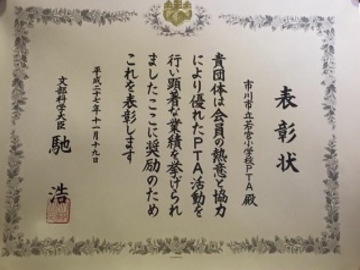 表彰状
市川市立若宮小学校PTA殿
貴団体は会員の熱意と協力
により優れたPTA活動を
行い顕著な業績を挙げられ
ましたここに奨励のため
これを表彰します
平成二十七年十一月十九日
文部科学大臣 馳 浩